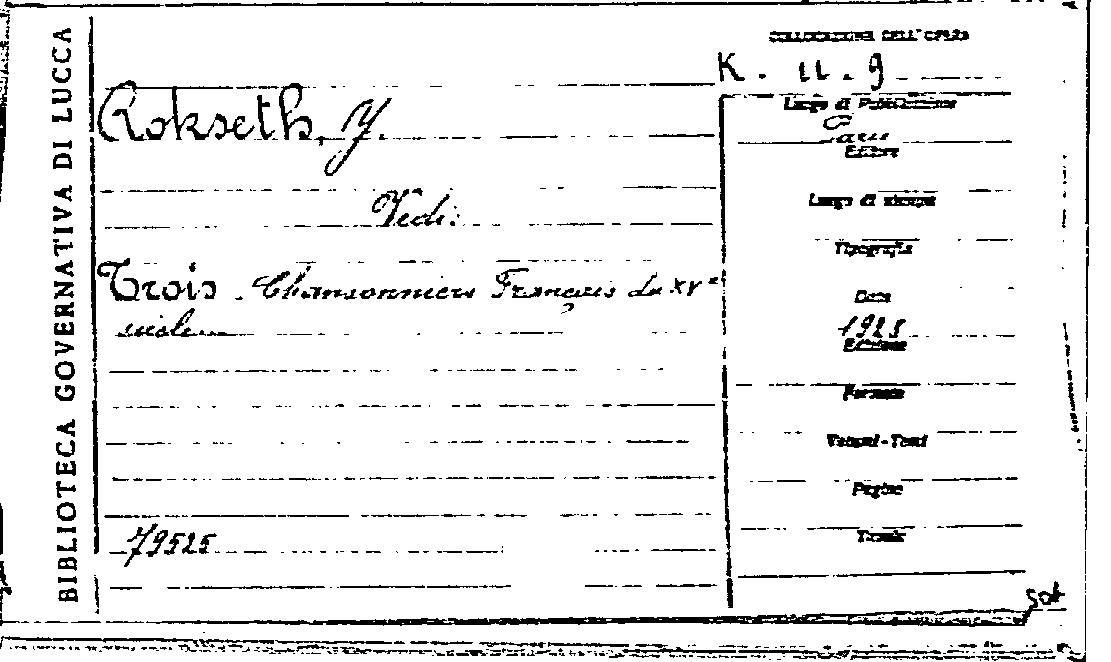 BIBLIOTECA GOVERNATIVA DI LUCCA
COLLOCAZIONE DELL'OPERA
K. II. 9
Rokseth, Y.
Vedi:
Trois Chansonniers Français du XVe
siècle
79525
Luogo di Pubblicazione
Paris
Editore
Luogo di stampa
Tipografia
Data
1928
Edizione
Formato
Volumi-Tomi
Pagine
Tavole